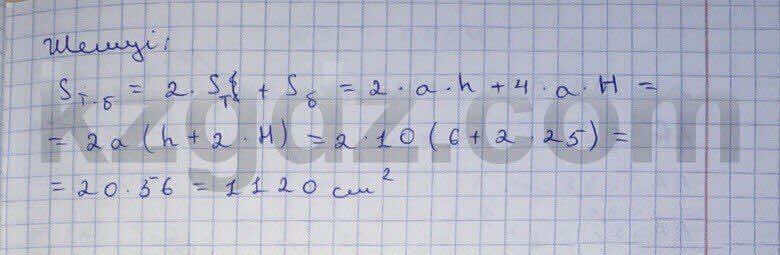 Шешуі:
S т.б = 2 · S т + S б = 2 · a · h + 4 · a · H =
= 2a (h + 2 · H) = 2 · 10 (6 + 2 · 25) =
= 20 · 56 = 1120 см²
kzgdz.com